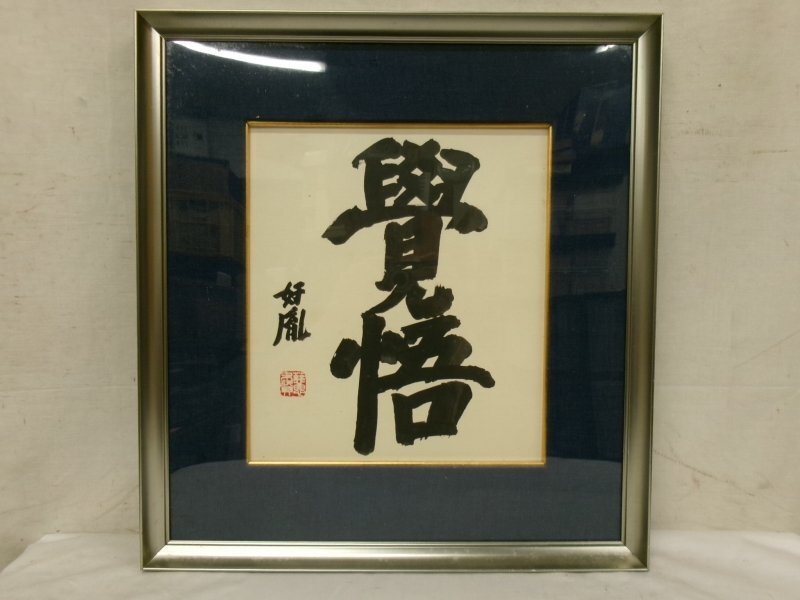 覺悟
好胤